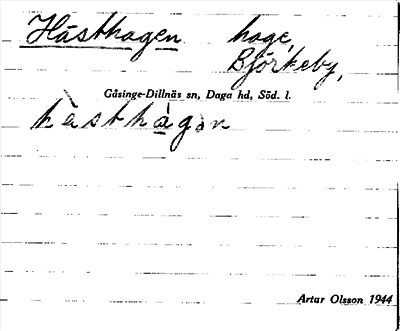 Hästhagen hage,
Björkeby,
Gåsinge-Dillnäs sn, Daga hd, Söd. l.
hästhàgən
Artur Olsson 1944